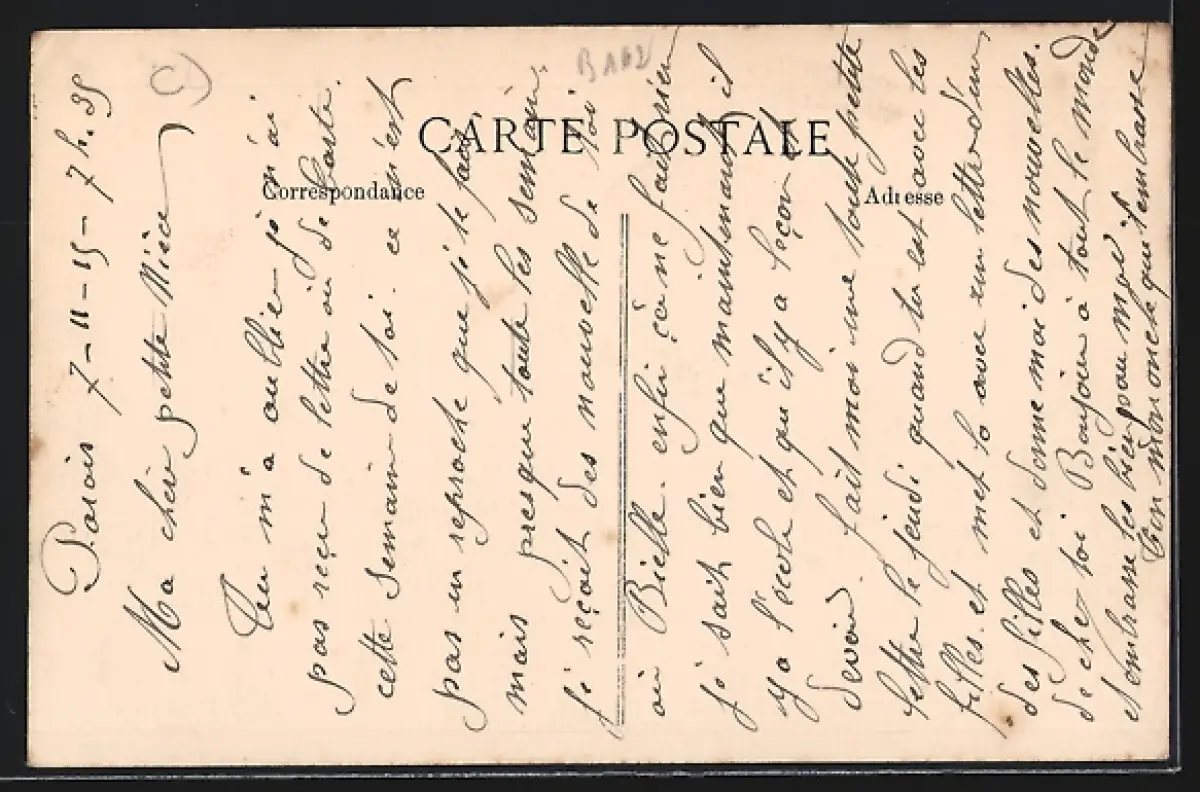 CARTE POSTALE
Correspondance
Adresse
Paris 7-11-15- 7h.35
Ma cher petite Nièce
Tu m'a oublier je n'ai
pas reçu de lettre ou de carte.
cette semain de toi. ce n'est
pas un reproche que je te fais
mais presque toute les semain
je reçoit des nouvelle de toi
ou Bielle. enfin ça ne fait rien
je sait bien que maintenant il
y a l'école et qu'il y a leçon
devoir. fait moi une toute petite
lettre le jeudi quand tu est avec les
filles. et met la avec un lettre d'un
des filles et donne moi des nouvelles.
de chez toi Bonjour à tout le monde
et embrasse les bien pour moi
Ton oncle qui t'embrasse